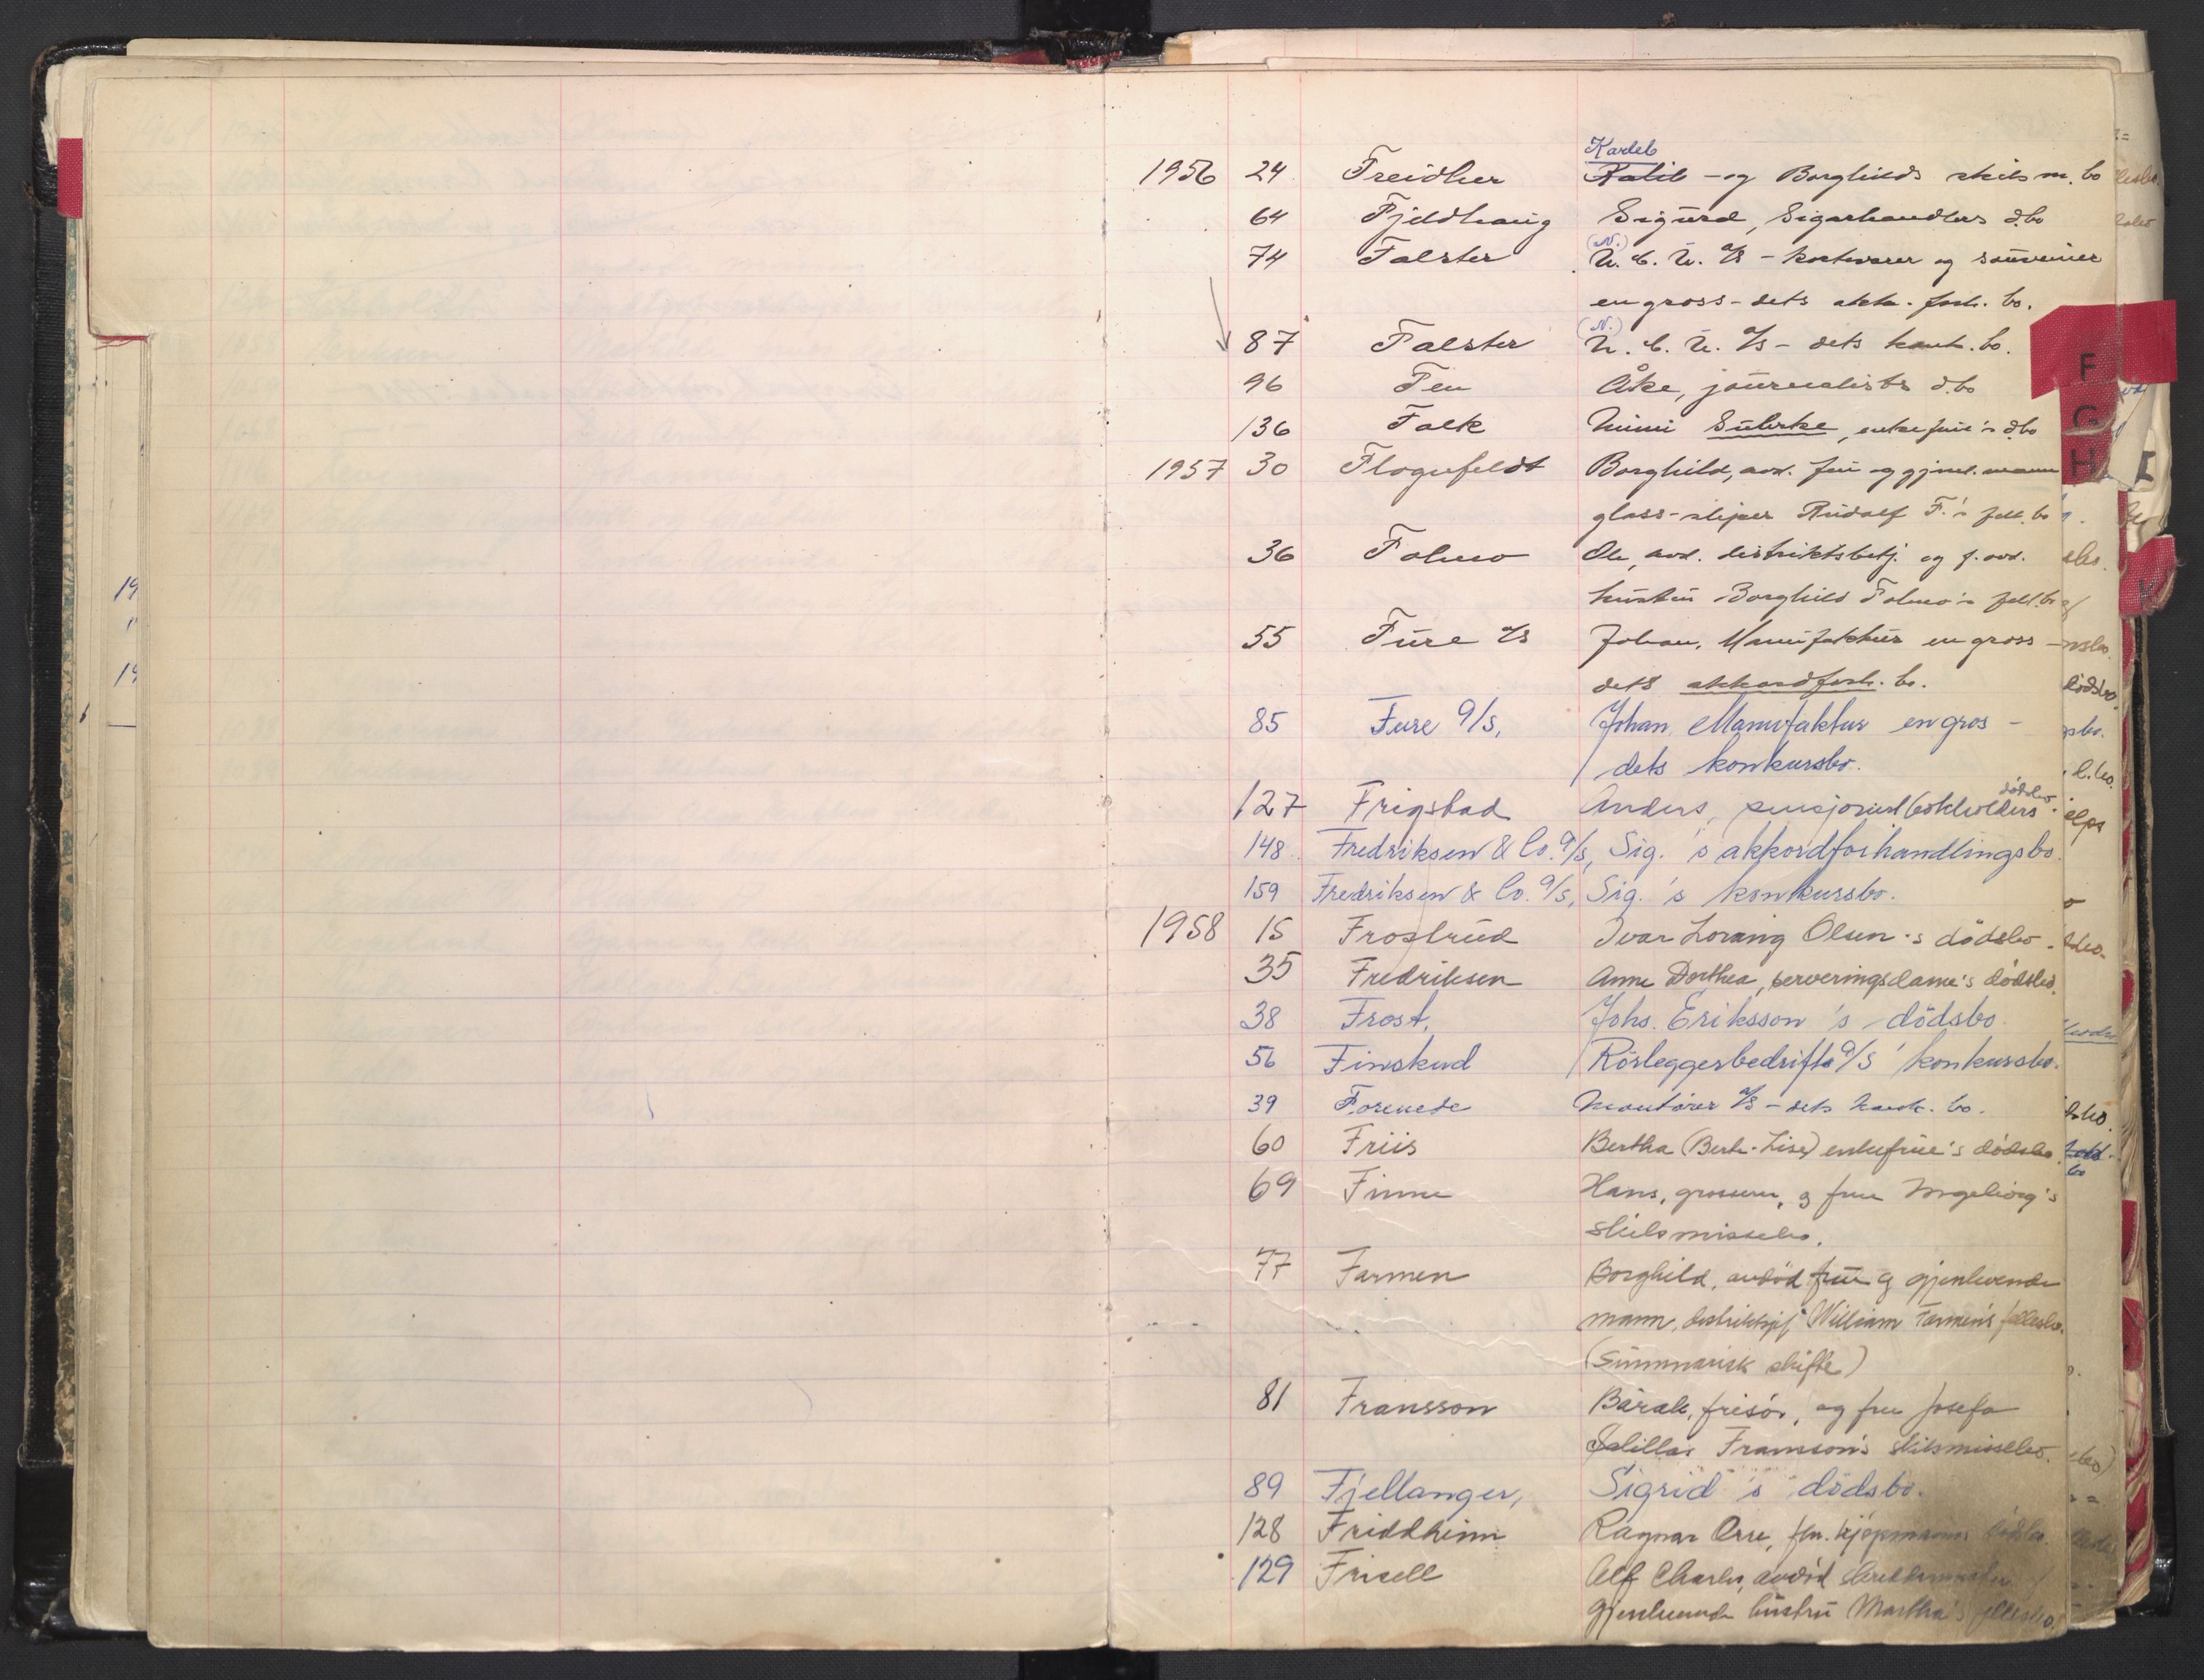 Kardeb
1956 24 Freidher Kalib - og Borghilds skilsm. bo
64 Fjeldhaug Sigurd, Sigarhandlers d.bo
74 Falster (N.) U. C. U. A/S - kortvarer og souvenier
en gross - dets akk. forh. bo.
87 Falster (N.) U. C. U. A/S - dets konk. bo.
96 Fen Åke, journalists d.bo
136 Falk Mimi Sülerke, enkefrue's dbo
1957 30 Flogufeldt Borghild, avd. fru og gjenl. mann
glass-sliper Rudolf F.'s fell. bo
36 Folmo Ole, avd. distriktsbetj. og f. avd.
hustru Borghild Folmo's fell. bo
55 Fure A/S Johan, Manufaktur en gross -
dets akkordforh. bo.
85 Fure A/S, Johan, Manufaktur en gros -
dets konkursbo.
dödsbo.
127 Frigstad Anders, pensjonert bokholders
148 Fredriksen & Co. A/S, Sig.'s akkordforhandlingsbo.
159 Fredriksen & Co. A/S, Sig.'s konkursbo.
1958 15 Frostrud Ivar Loraing Olsen's dödsbo.
35 Fredriksen Anne Dorthea, serveringsdame's dödsbo.
38 Frost, Johs. Eriksson's dödsbo
56 Finskud Rörleggerbedrifts A/S' konkursbo.
39 Forenede Montører A/S - dets konk. bo.
60 Friis Bertha (Berth. Lise) enkefrue's dødsbo.
69 Finne Hans, grosserer, og frue Ingeborg's
skilsmissebo.
77 Farmen Borghild, avdød frue og gjenlevende
mann, distriktssjef William Farmen's fellesbo.
(Summarisk skifte)
81 Fransson Barak, frisør, og frue Josefa
Salillas Fransson's skilsmissebo.
89 Fjellanger, Sigrid's dödsbo.
128 Friddheim Ragnar Orre, fhv. kjøpmanns dödsbo.
129 Frisell Alf Charles, avdöd skreddermester
gjenlevende hustru Martha's fellesbo.
F
G
H
I
K